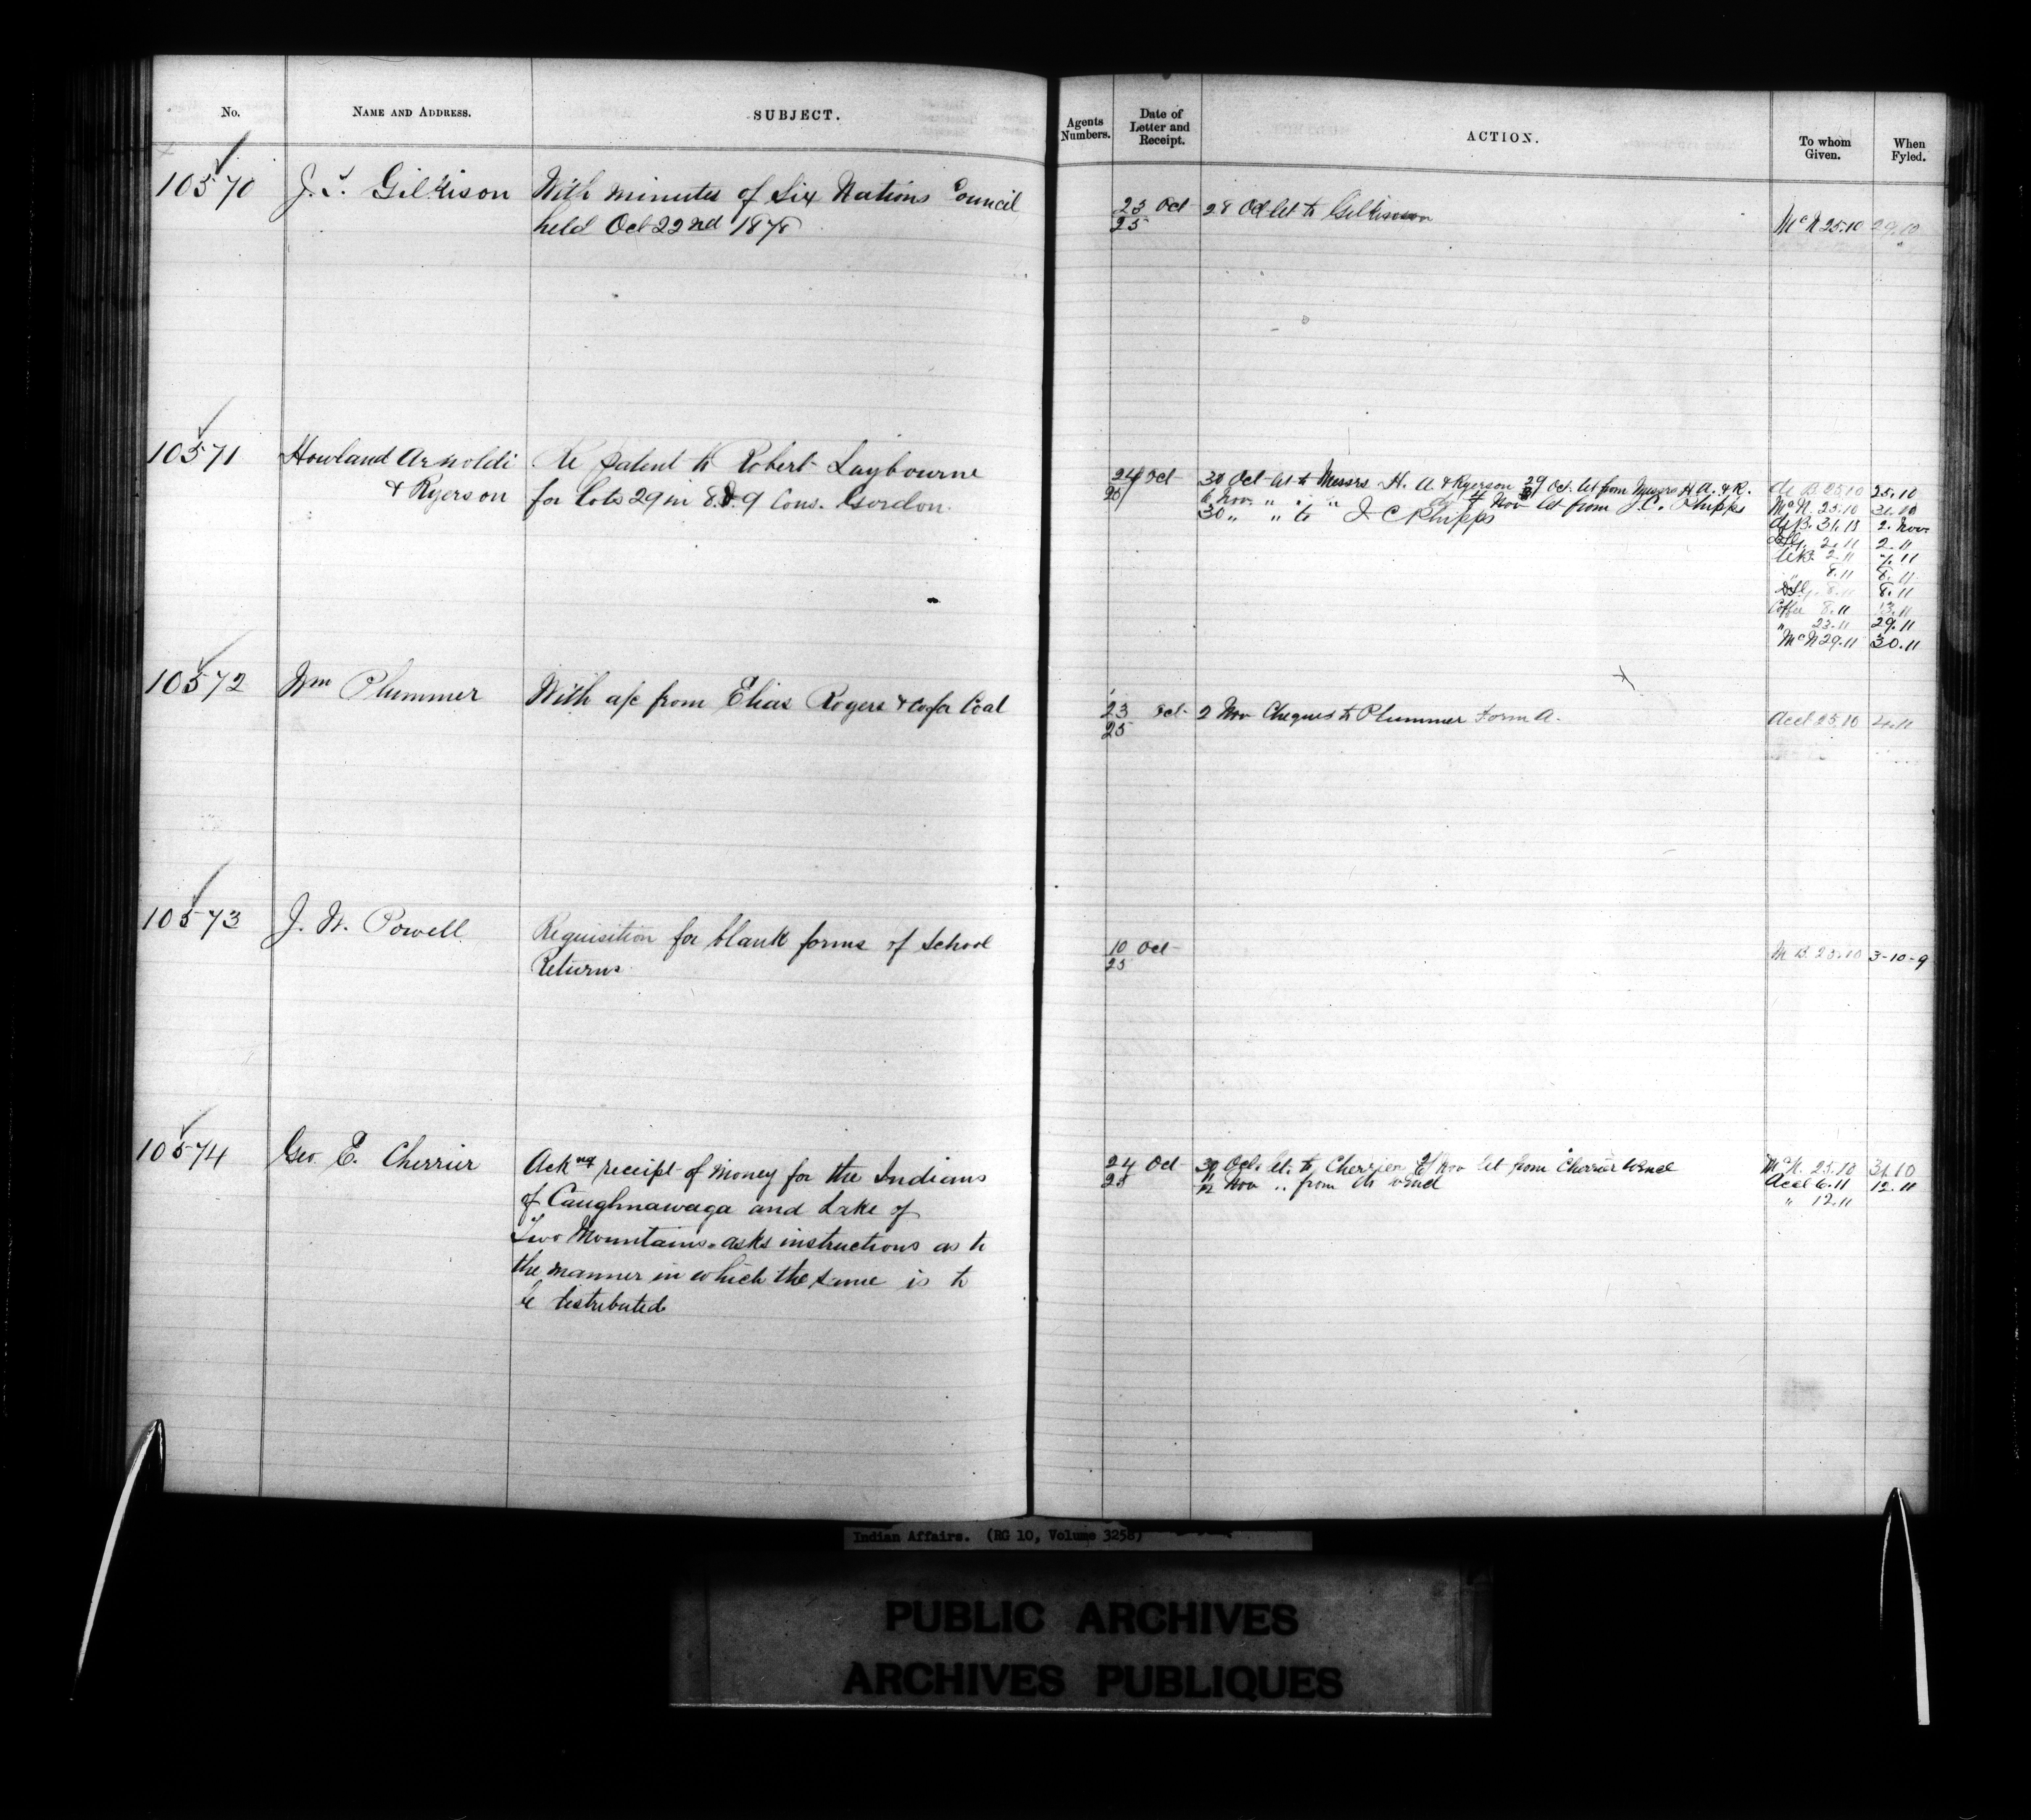 No. NAME AND ADDRESS. SUBJECT.
10570 J. T. Gilkison With minutes of Six Nations Council
held Oct 22nd 1878
10571 Howland Arnoldi Re Patent to Robert Laybourne
& Ryerson for lots 29 in 8.&9 Cons. Gordon
10572 Wm Plummer With a/c from Elias Rogers & Co for Coal
10573 J. W. Powell Requisition for blank forms of School
Returns
10574 Geo E. Cherrier Ackng receipt of money for the Indians
of Caughnawaga and Lake of
Two Mountains. asks instructions as to
the manner in which the same is to
be distributed
Agents Numbers. Date of Letter and Receipt. ACTION. To whom Given. When Fyled.
23 Oct 28 Oct let to Gilkinson McN 25.10 29.10
25
24 Oct 30 Oct let to Messrs H. A. & Ryerson 29 Oct. let from Messrs H A. & R. de B 25.10 25.10
6 Nov. " " " Nov let from J. C. Phipps McN. 25.10 31.10
30 " " to J C Phipps de B. 31.10 2. Nov
2.11 2.11
2.11 7.11
8.11 8.11
8.11 8.11
Coffee 8.11 13.11
" 23.11 29.11
McN 29.11 30.11
23 Oct 2 Nov Cheques to Plummer Form A. Acct 25.10 4.11
25
10 Oct M B. 25.10 3-10-9
25
24 Oct 30 Oct. let. to Cherrier Nov let from Cherrier McN. 25.10 31.10
25 12 Nov .. from Acct 6.11 12.11
" 12.11
Indian Affairs. (RG 10, Volume 3258)
PUBLIC ARCHIVES
ARCHIVES PUBLIQUES